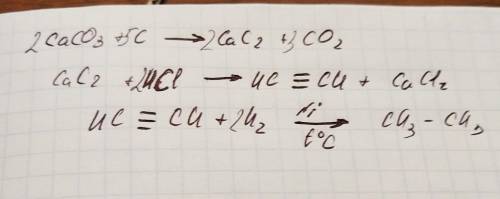 2CaCO3 + 5C → 2CaC2 + 3CO2
CaC2 + 2HCl → HC ≡ CH + CaCl2
HC ≡ CH + 2H2 Ni → t°C CH3 - CH3